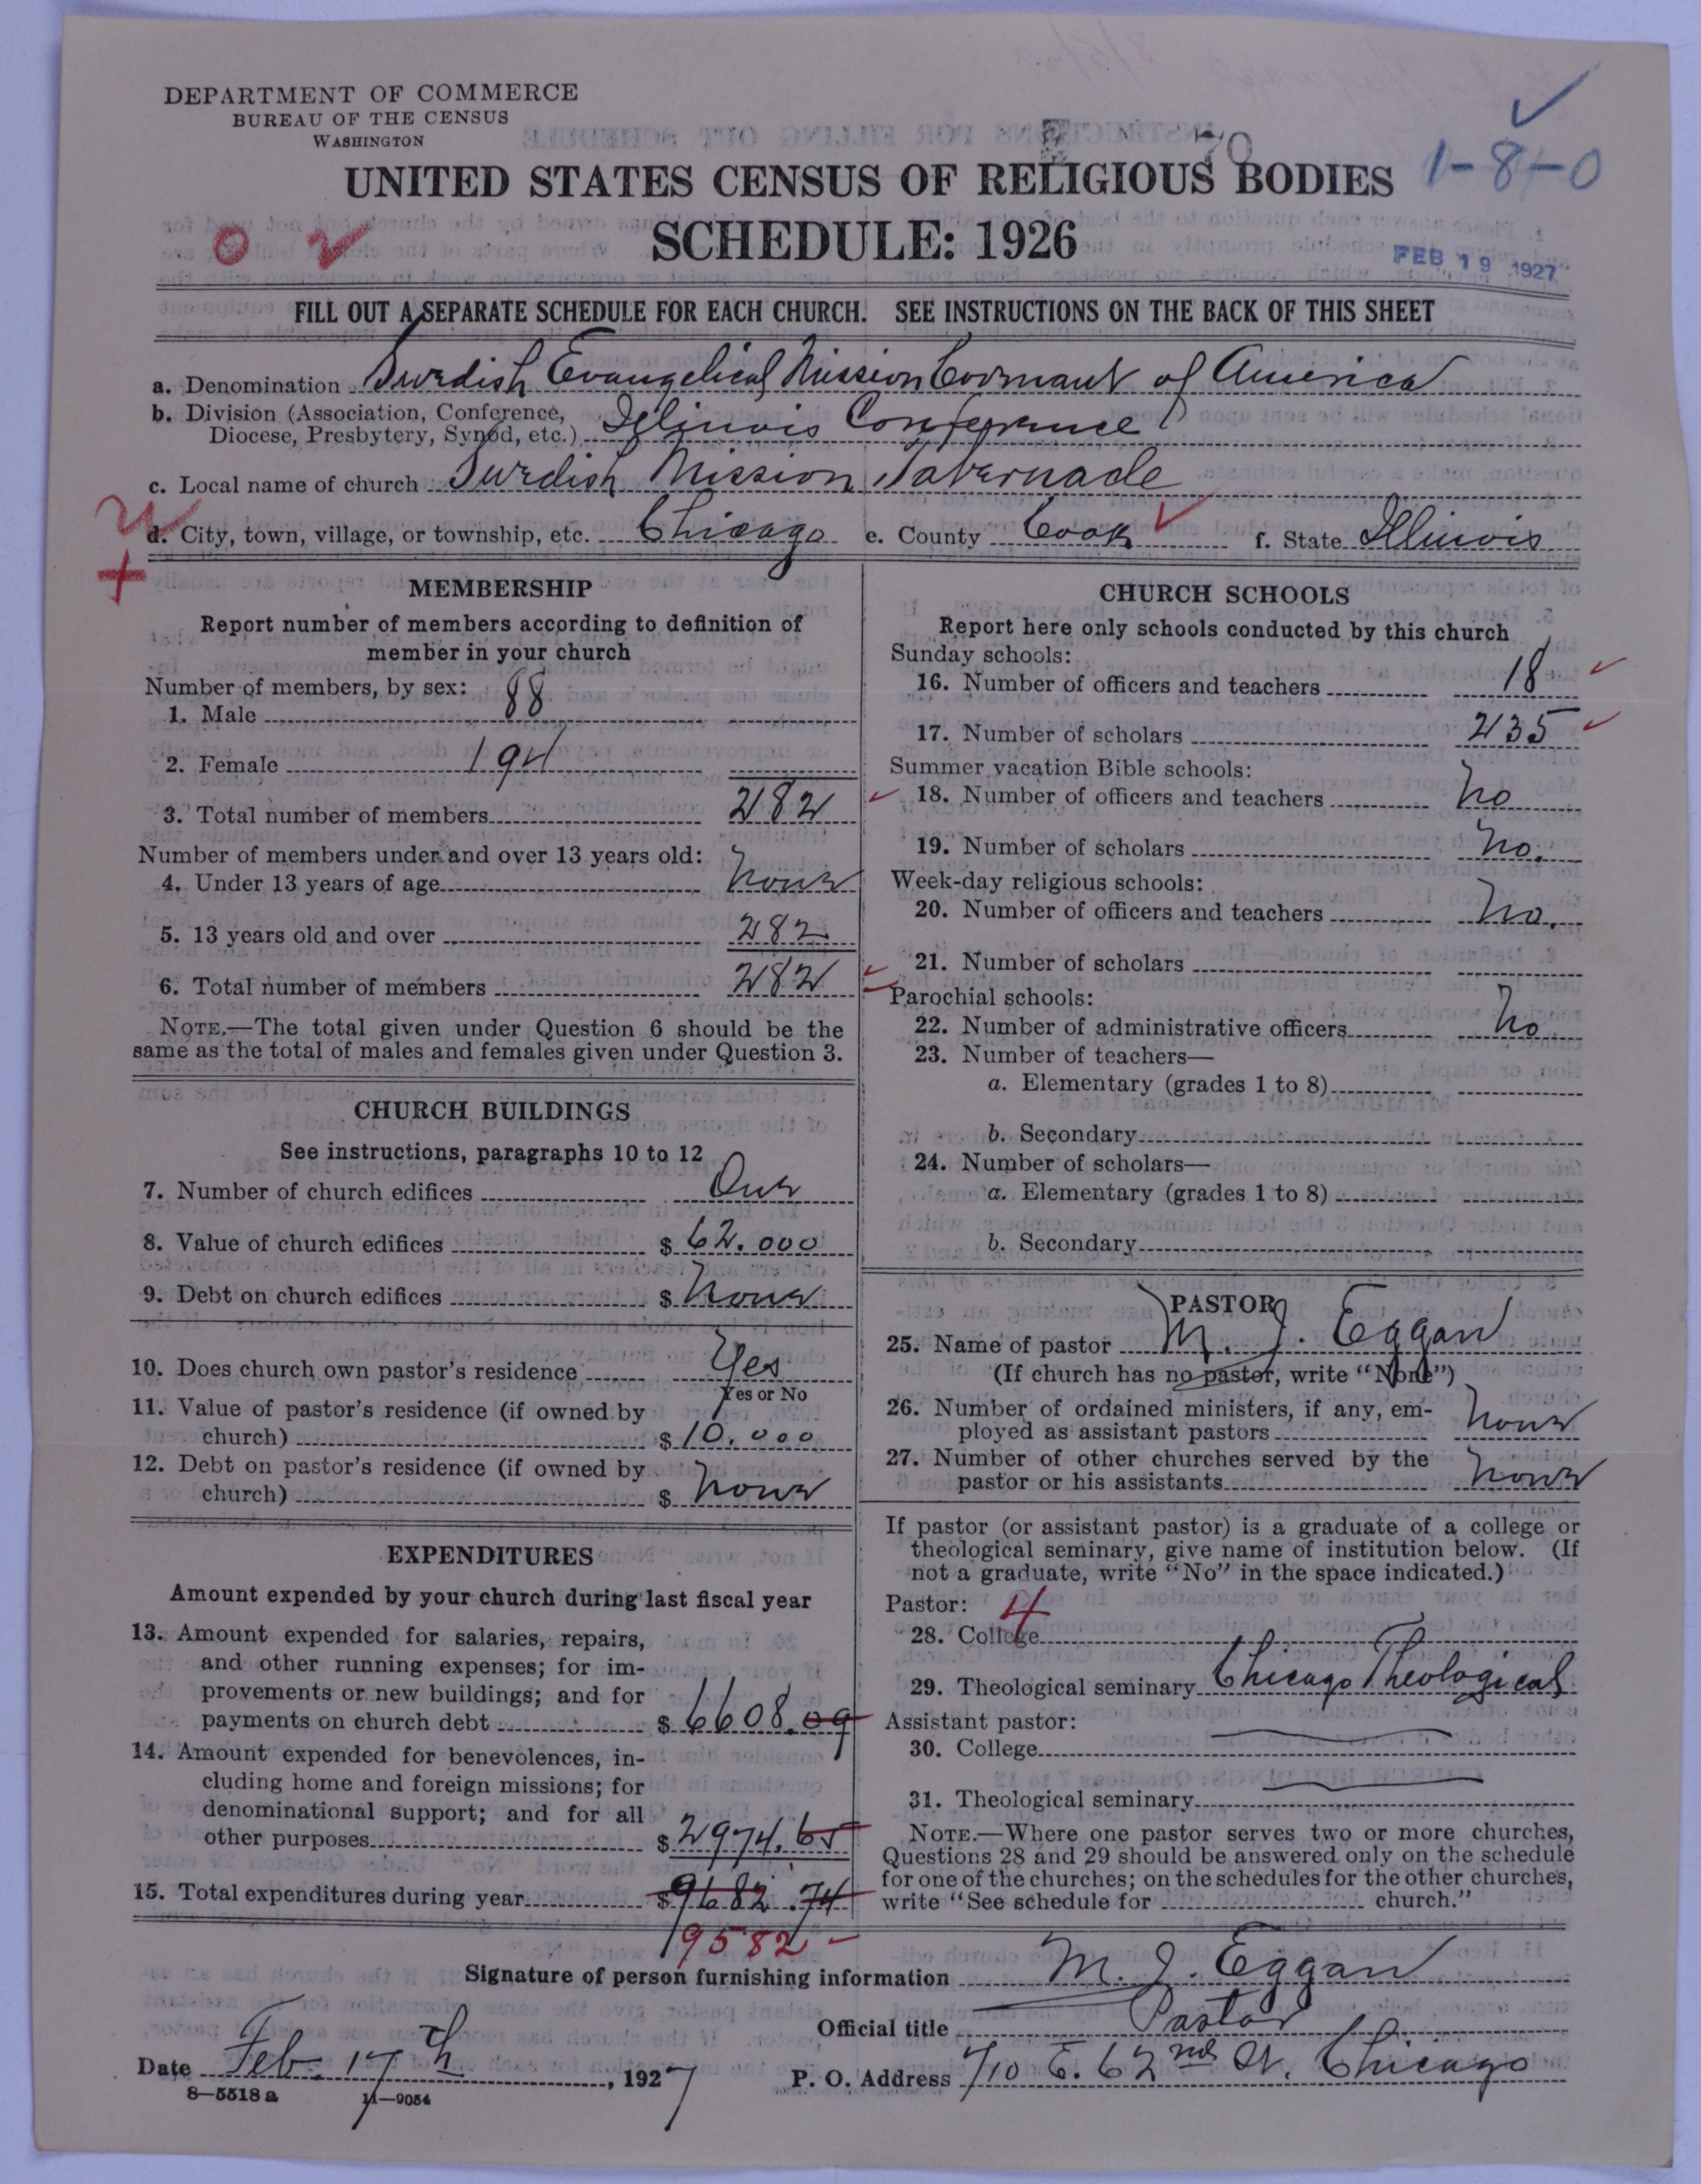 DEPARTMENT OF COMMERCE
BUREAU OF THE CENSUS
WASHINGTON
70
1-8-0
UNITED STATES CENSUS OF RELIGIOUS BODIES
SCHEDULE: 1926
FEB 19 1927
FILL OUT A SEPARATE SCHEDULE FOR EACH CHURCH. SEE INSTRUCTIONS ON THE BACK OF THIS SHEET
a. Denomination Swedish Evangelical Mission Covenant of America
b. Division (Association, Conference,
Diocese, Presbytery, Synod, etc.) Illinois Conference
c. Local name of church Swedish Mission Tabernacle
d. City, town, village, or township, etc. Chicago e. County Cook f. State Illinois
MEMBERSHIP
Report number of members according to definition of
member in your church
Number of members, by sex:
1. Male 88
2. Female 194
3. Total number of members 282
Number of members under and over 13 years old:
4. Under 13 years of age None
5. 13 years old and over 282
6. Total number of members 282
NOTE.—The total given under Question 6 should be the
same as the total of males and females given under Question 3.
CHURCH BUILDINGS
See instructions, paragraphs 10 to 12
7. Number of church edifices One
8. Value of church edifices $ 62.000
9. Debt on church edifices $ None
10. Does church own pastor's residence Yes
Yes or No
11. Value of pastor's residence (if owned by
church) $ 10.000
12. Debt on pastor's residence (if owned by
church) $ None
EXPENDITURES
Amount expended by your church during last fiscal year
13. Amount expended for salaries, repairs,
and other running expenses; for im-
provements or new buildings; and for
payments on church debt $ 6608.09
14. Amount expended for benevolences, in-
cluding home and foreign missions; for
denominational support; and for all
other purposes $ 2974.65
15. Total expenditures during year $ 9682.74
9582
CHURCH SCHOOLS
Report here only schools conducted by this church
Sunday schools:
16. Number of officers and teachers 18
17. Number of scholars 235
Summer vacation Bible schools:
18. Number of officers and teachers No
19. Number of scholars No.
Week-day religious schools:
20. Number of officers and teachers No.
21. Number of scholars
Parochial schools:
22. Number of administrative officers No
23. Number of teachers—
a. Elementary (grades 1 to 8)
b. Secondary
24. Number of scholars—
a. Elementary (grades 1 to 8)
b. Secondary
PASTOR
25. Name of pastor M. J. Eggan
(If church has no pastor, write "None")
26. Number of ordained ministers, if any, em-
ployed as assistant pastors None
27. Number of other churches served by the
pastor or his assistants None
If pastor (or assistant pastor) is a graduate of a college or
theological seminary, give name of institution below. (If
not a graduate, write "No" in the space indicated.)
Pastor: 4
28. College
29. Theological seminary Chicago Theological
Assistant pastor:
30. College
31. Theological seminary
NOTE.—Where one pastor serves two or more churches,
Questions 28 and 29 should be answered only on the schedule
for one of the churches; on the schedules for the other churches,
write "See schedule for church."
Signature of person furnishing information M. J. Eggan
Official title Pastor
Date Feb. 17th, 1927
P. O. Address 710 E. 62nd St. Chicago
8—5518 a 11—9054